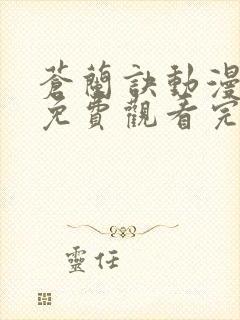 蒼蘭訣動漫
免費觀看完
靈任